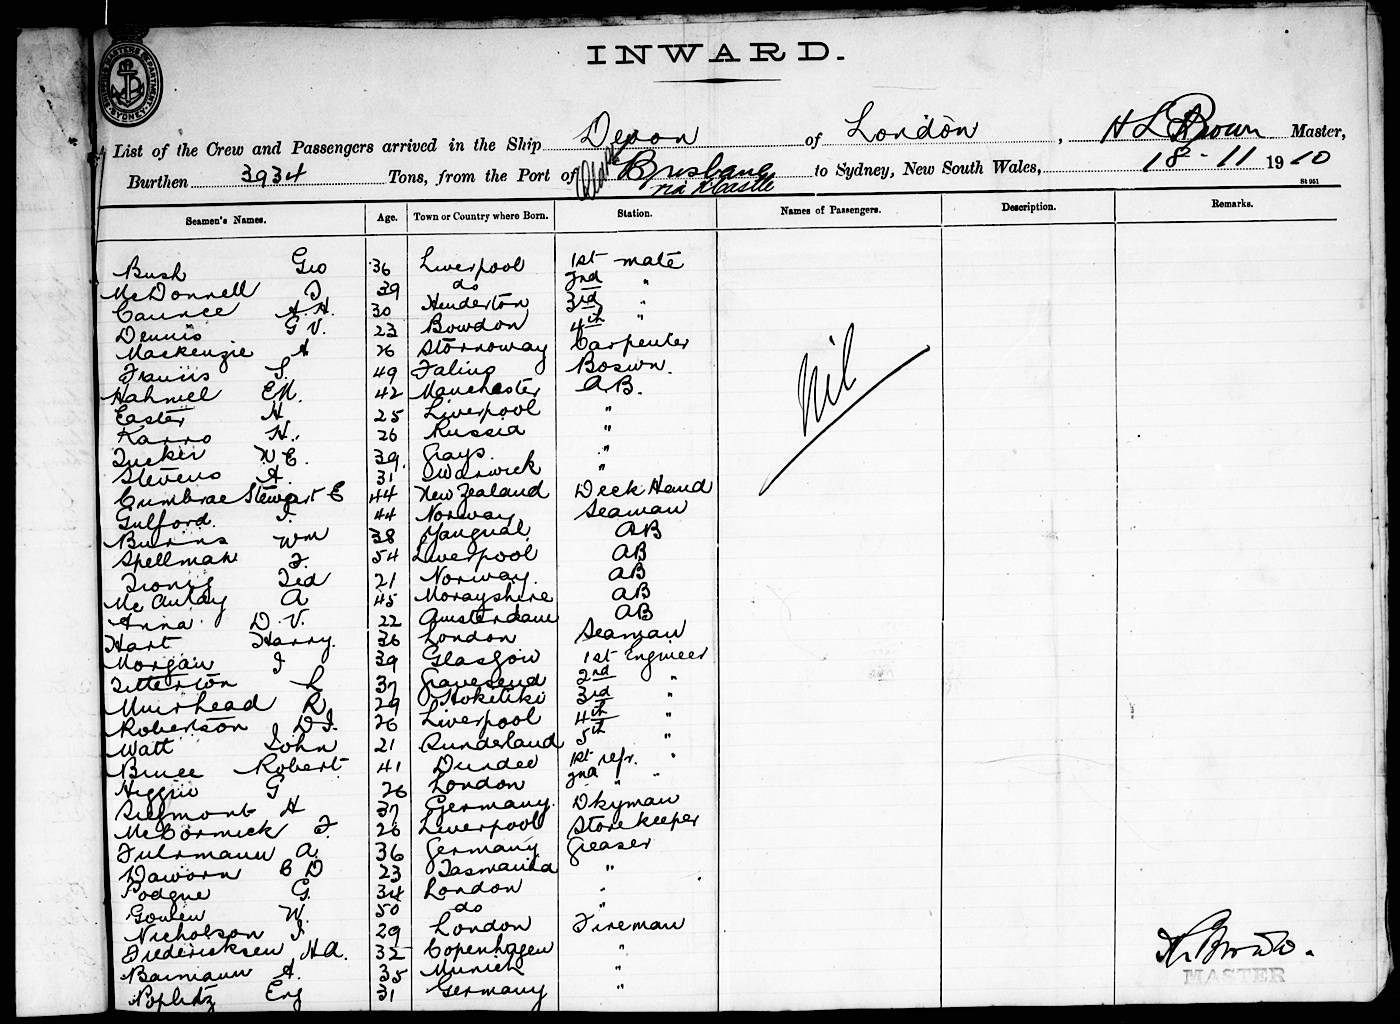 SHIPPING MASTERS DEPARTMENT SYDNEY
INWARD.
List of the Crew and Passengers arrived in the Ship Devon of London, H L Brown Master,
Burthen 3934 Tons, from the Port of Brisbane to Sydney, New South Wales, 18-11 1910
via N'Castle
St 951
Seamen's Names. Age. Town or Country where Born. Station. Names of Passengers. Description. Remarks.
Bush Geo 36 Liverpool 1st mate
McDonnell D 39 do 2nd "
Caunce A.H. 30 Henderton 3rd "
Dennis G V. 23 Bowdon 4th "
Mackenzie A 26 Stornoway Carpenter
Francis S. 49 Boswn.
Hahmel EM. 42 Manchester AB.
Easter H 25 Liverpool "
Karro H. 26 Russia "
Tucker W E. 39. Grays. "
Stevens A. 31 Swanwick "
Cumbrae Stewart E 44 New Zealand Deck Hand
Gulford. J. 44 Norway Seaman
Burns Wm 38 AB
Spellman J. 54 Liverpool AB
Ted 21 Norway. AB
McAulay A 45 Morayshire AB
Anna D.V. 22 Amsterdam AB
Hart Harry. 36 London Seaman
Morgan J 39 Glasgow 1st Engineer
Titterton L 37 Gravesend 2nd "
Muirhead R. 29 Hokitiki 3rd "
Robertson D J. 26 Liverpool 4th "
Watt John 21 Sunderland 5th "
Bruce Robert 41 Dundee 1st refr. "
Higgin G 26 London 2nd " "
Siegmont H 37 Germany. Dkyman
McCormick J. 26 Liverpool Storekeeper
Fuhrmann A. 36 Germany Greaser
Daworn C D 23 Tasmania "
Podgue G. 34 London "
Gowen W. 50 do "
Nicholson J. 29 London Fireman
Fredericksen H A. 32 Copenhagen "
Baimann A. 35 Munich "
Poplitz Erg 31 Germany "
Nil
MASTER